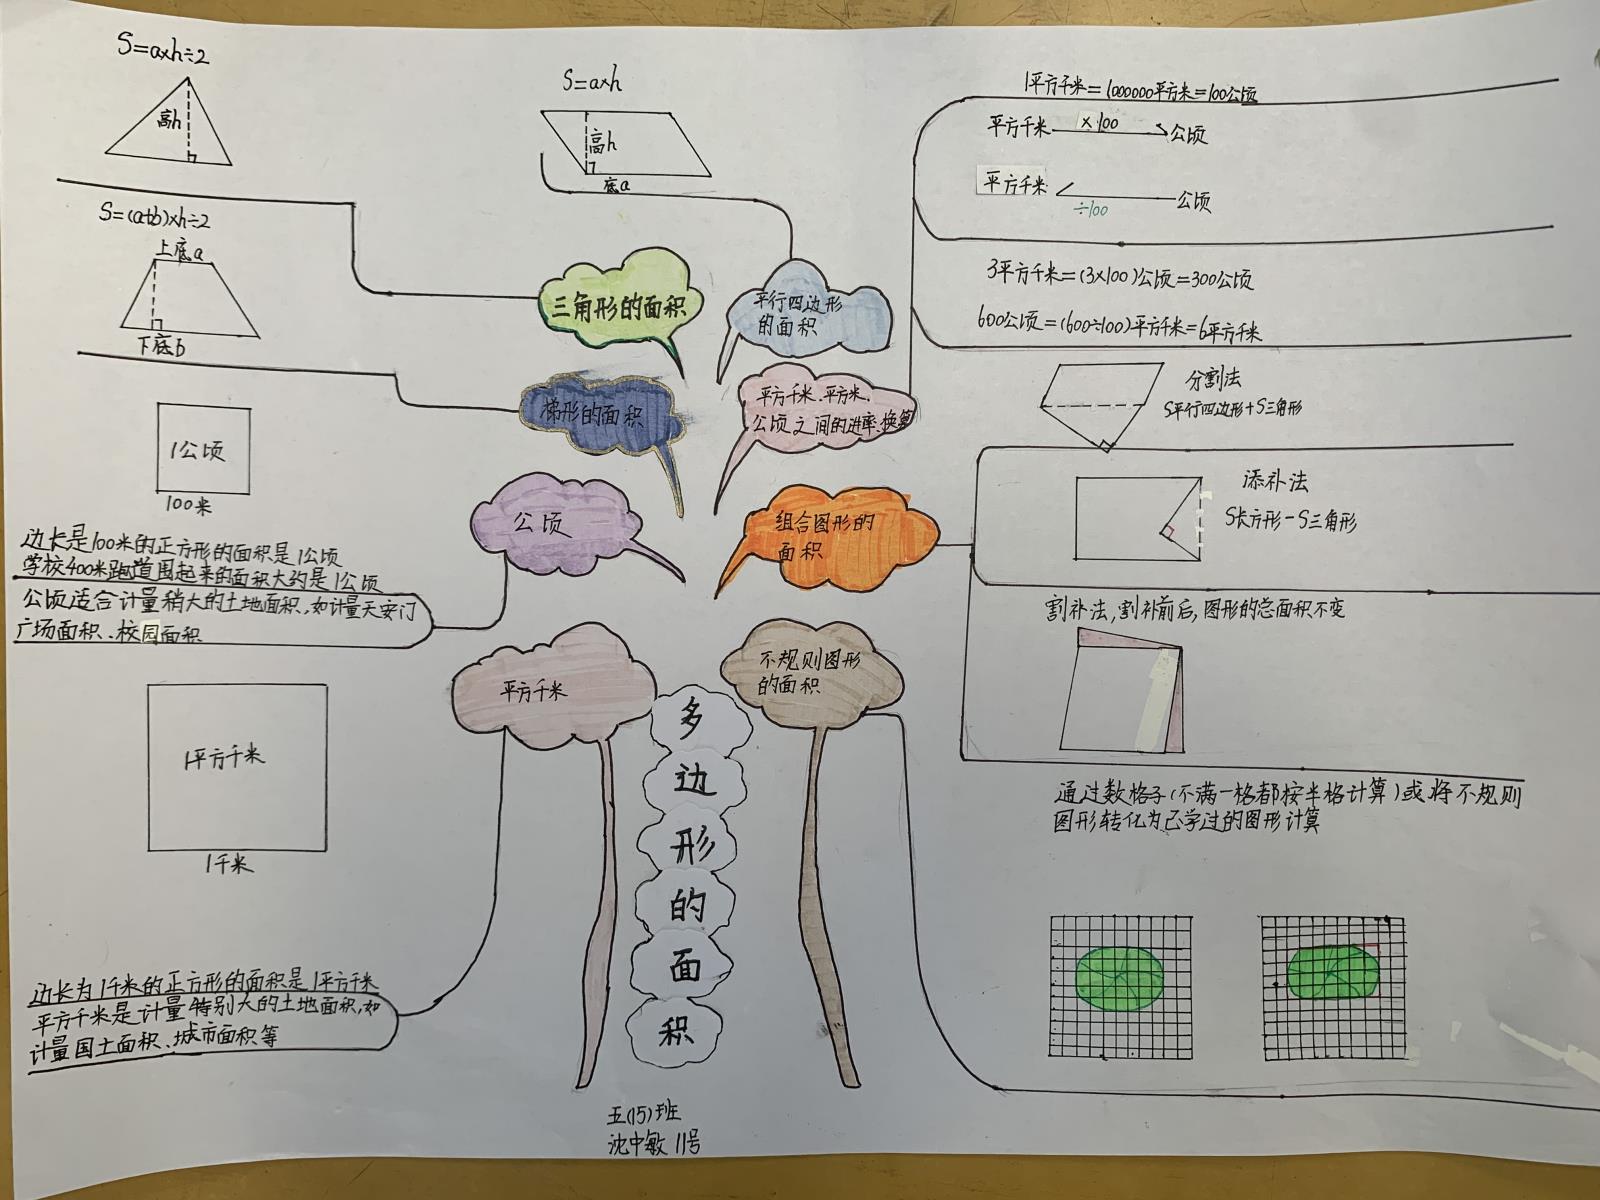 S=a×h÷2
高h
S=(a+b)×h÷2
上底a
下底b
1公顷
100米
边长是100米的正方形的面积是1公顷
学校400米跑道围起来的面积大约是1公顷
公顷适合计量稍大的土地面积,如计量天安门
广场面积、校园面积
1平方千米
1千米
边长为1千米的正方形的面积是1平方千米
平方千米是计量特别大的土地面积,如
计量国土面积、城市面积等
三角形的面积
梯形的面积
公顷
平方千米
S=a×h
高h
底a
平行四边形
的面积
平方千米、平方米、
公顷之间的进率、换算
组合图形的
面积
不规则图形
的面积
多
边
形
的
面
积
五(15)班
沈中敏 11号
1平方千米=1000000平方米=100公顷
平方千米 ×100 公顷
平方千米 ÷100 公顷
3平方千米=(3×100)公顷=300公顷
600公顷=(600÷100)平方千米=6平方千米
分割法
S平行四边形+S三角形
添补法
S长方形-S三角形
割补法,割补前后,图形的总面积不变
通过数格子(不满一格都按半格计算)或将不规则
图形转化为已学过的图形计算